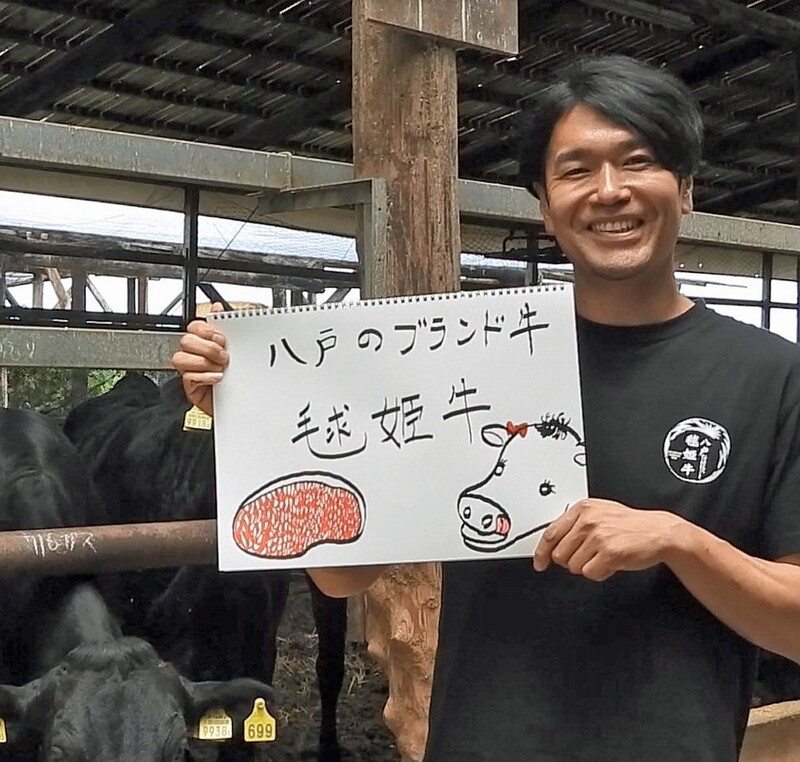 八戸のブランド牛
毬姫牛
八戸
毬姫牛
9938
699